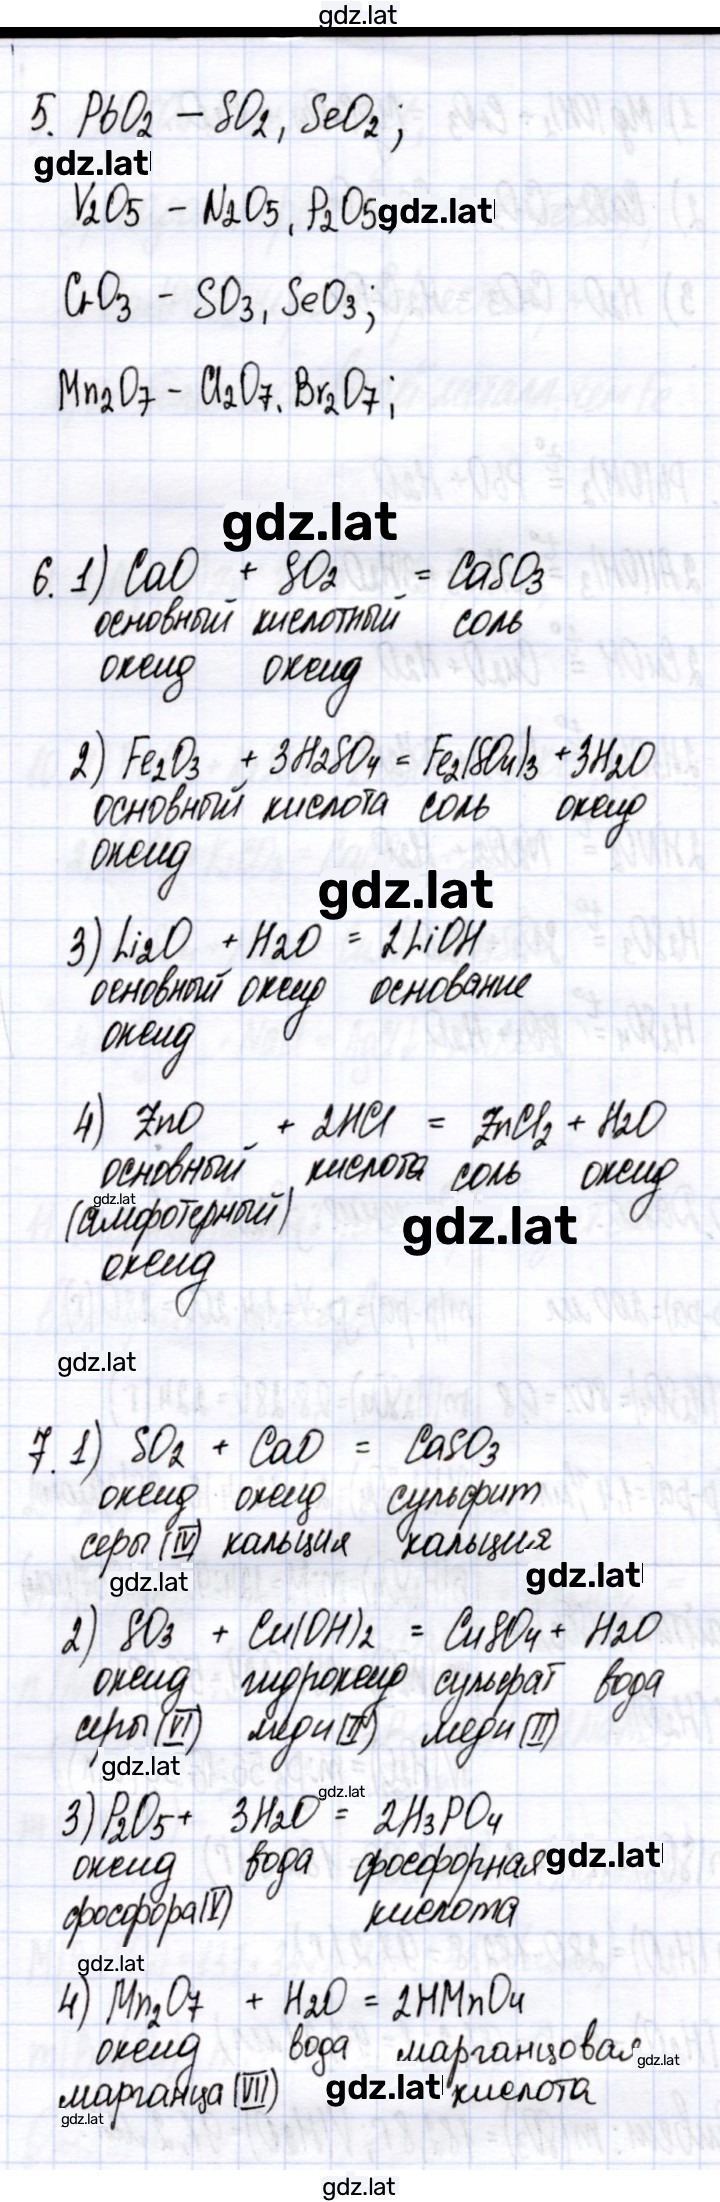 gdz.lat
5. PbO₂ – SO₂, SeO₂;
gdz.lat
V₂O₅ – N₂O₅, P₂O₅, gdz.lat
CrO₃ – SO₃, SeO₃;
Mn₂O₇ – Cl₂O₇, Br₂O₇;
gdz.lat
6. 1) CaO + SO₂ = CaSO₃
основный кислотный соль
оксид оксид
2) Fe₂O₃ + 3H₂SO₄ = Fe₂(SO₄)₃ + 3H₂O
основный кислота соль оксид
оксид
gdz.lat
3) Li₂O + H₂O = 2LiOH
основный оксид основание
оксид
4) ZnO + 2HCl = ZnCl₂ + H₂O
основный кислота соль оксид
gdz.lat
(амфотерный) gdz.lat
оксид
gdz.lat
7. 1) SO₂ + CaO = CaSO₃
оксид оксид сульфит
серы (IV) кальция кальция
gdz.lat gdz.lat
2) SO₃ + Cu(OH)₂ = CuSO₄ + H₂O
оксид гидроксид сульфат вода
серы (VI) меди (II) меди (II)
gdz.lat
gdz.lat
3) P₂O₅ + 3H₂O = 2H₃PO₄
оксид вода фосфорная gdz.lat
фосфора (V) кислота
gdz.lat
4) Mn₂O₇ + H₂O = 2HMnO₄
оксид вода марганцовая gdz.lat
марганца (VII) gdz.lat кислота
gdz.lat
gdz.lat